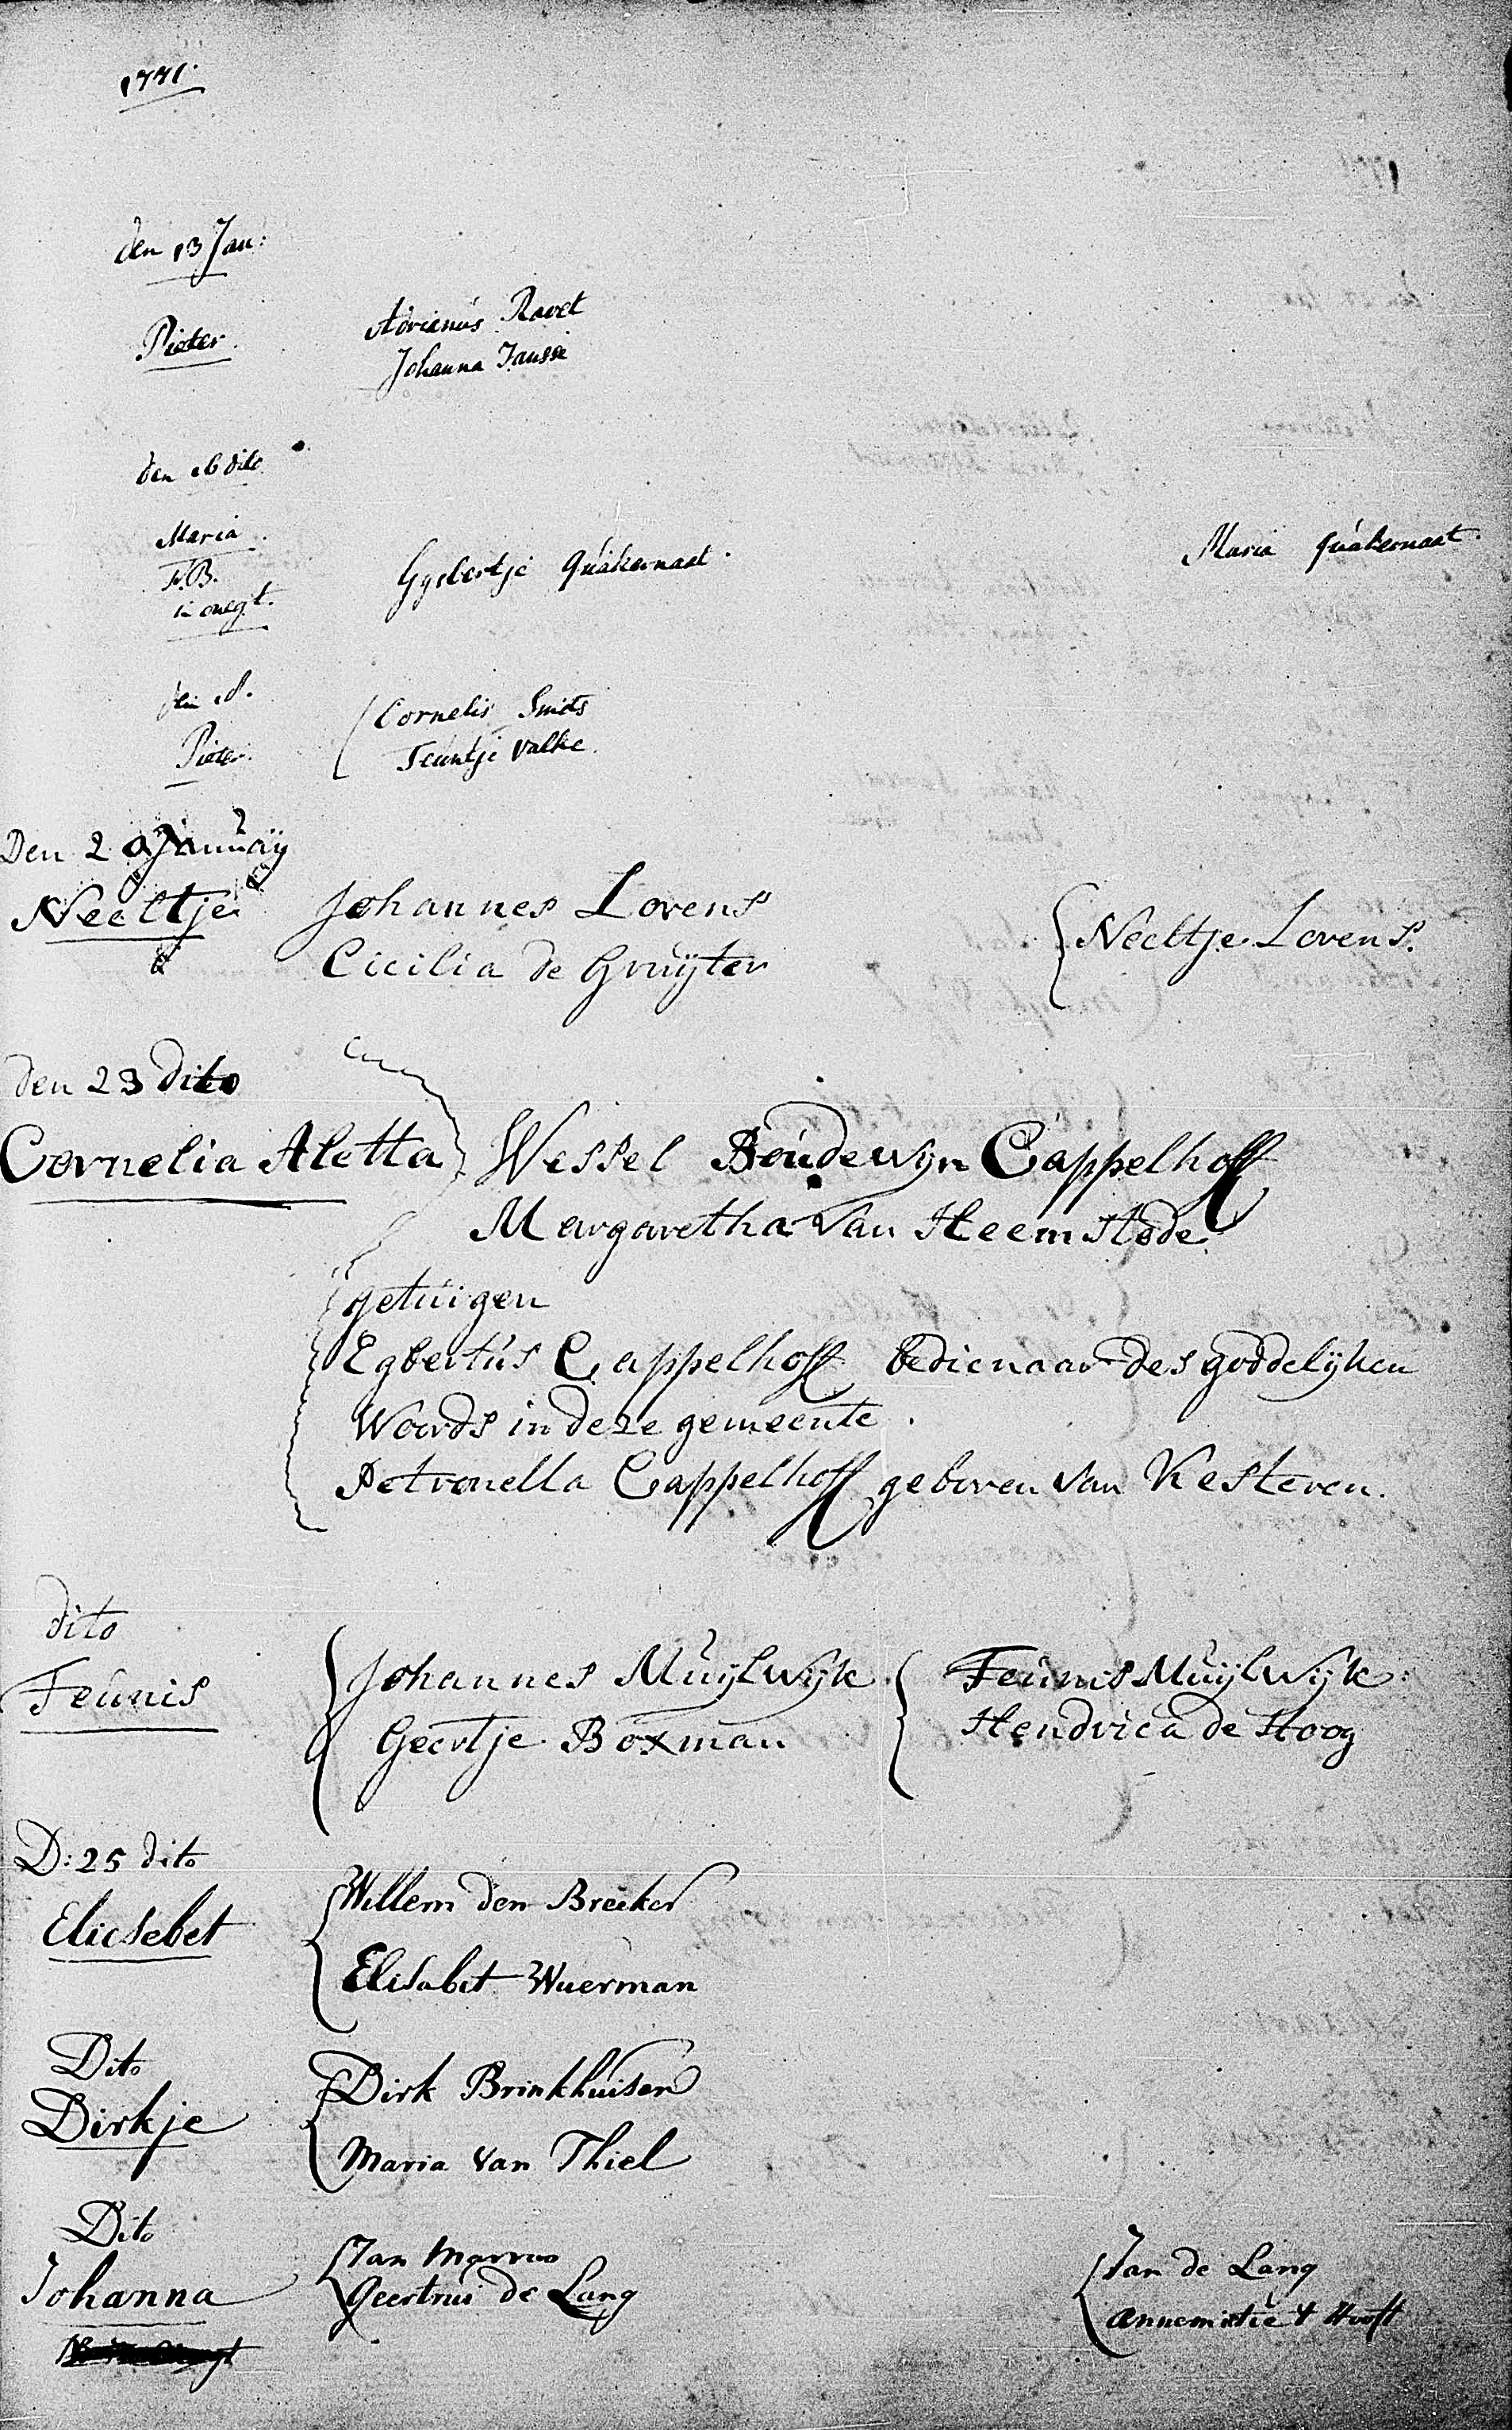 1771.
den 13 Jan:
Pieter. Adrianús Ravet
Johanna Jansse
den 16 dito
Maria
N.B.
in onegt. Gysbertje Qúakernaat. Maria Qúakernaat.
den
Pieter. Cornelis Smits
Teuntje Valke.
Den 20 Januarÿ
Neeltje Johannes Lorens Neeltje Lorens.
Cicilia de Grúÿter
den 23 dito
Cornelia Aletta Wessel Boúdewÿn Cappelhoff
Margaretha van Heemstede
getúigen
Egbertús Cappelhoff bedienaar des goddelÿken
Woords in deze gemeente.
Petronella Cappelhoff geboren van Kesteren.
dito
Teúnis Johannes Múÿlwÿk Teúnis Múÿlwÿk
Geertje Boxman Hendrica de Hoog
D: 25 dito
Eliesebet Willem den Breeker
Elisabet Wuerman
Dito
Dirkje Dirk Brinkhuisen
Maria Van Thiel
Dito
Johanna Jan Marrus Jan de Lang
Geertrui de Lang Annemietie t Hooft